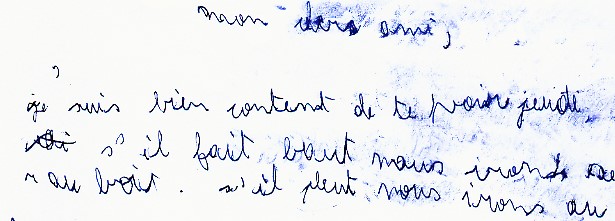 mon chers ami,
je suis bien contend de te voir jeudi
s'il fait baut nous irons
au boit. s'il pleut nous irons au